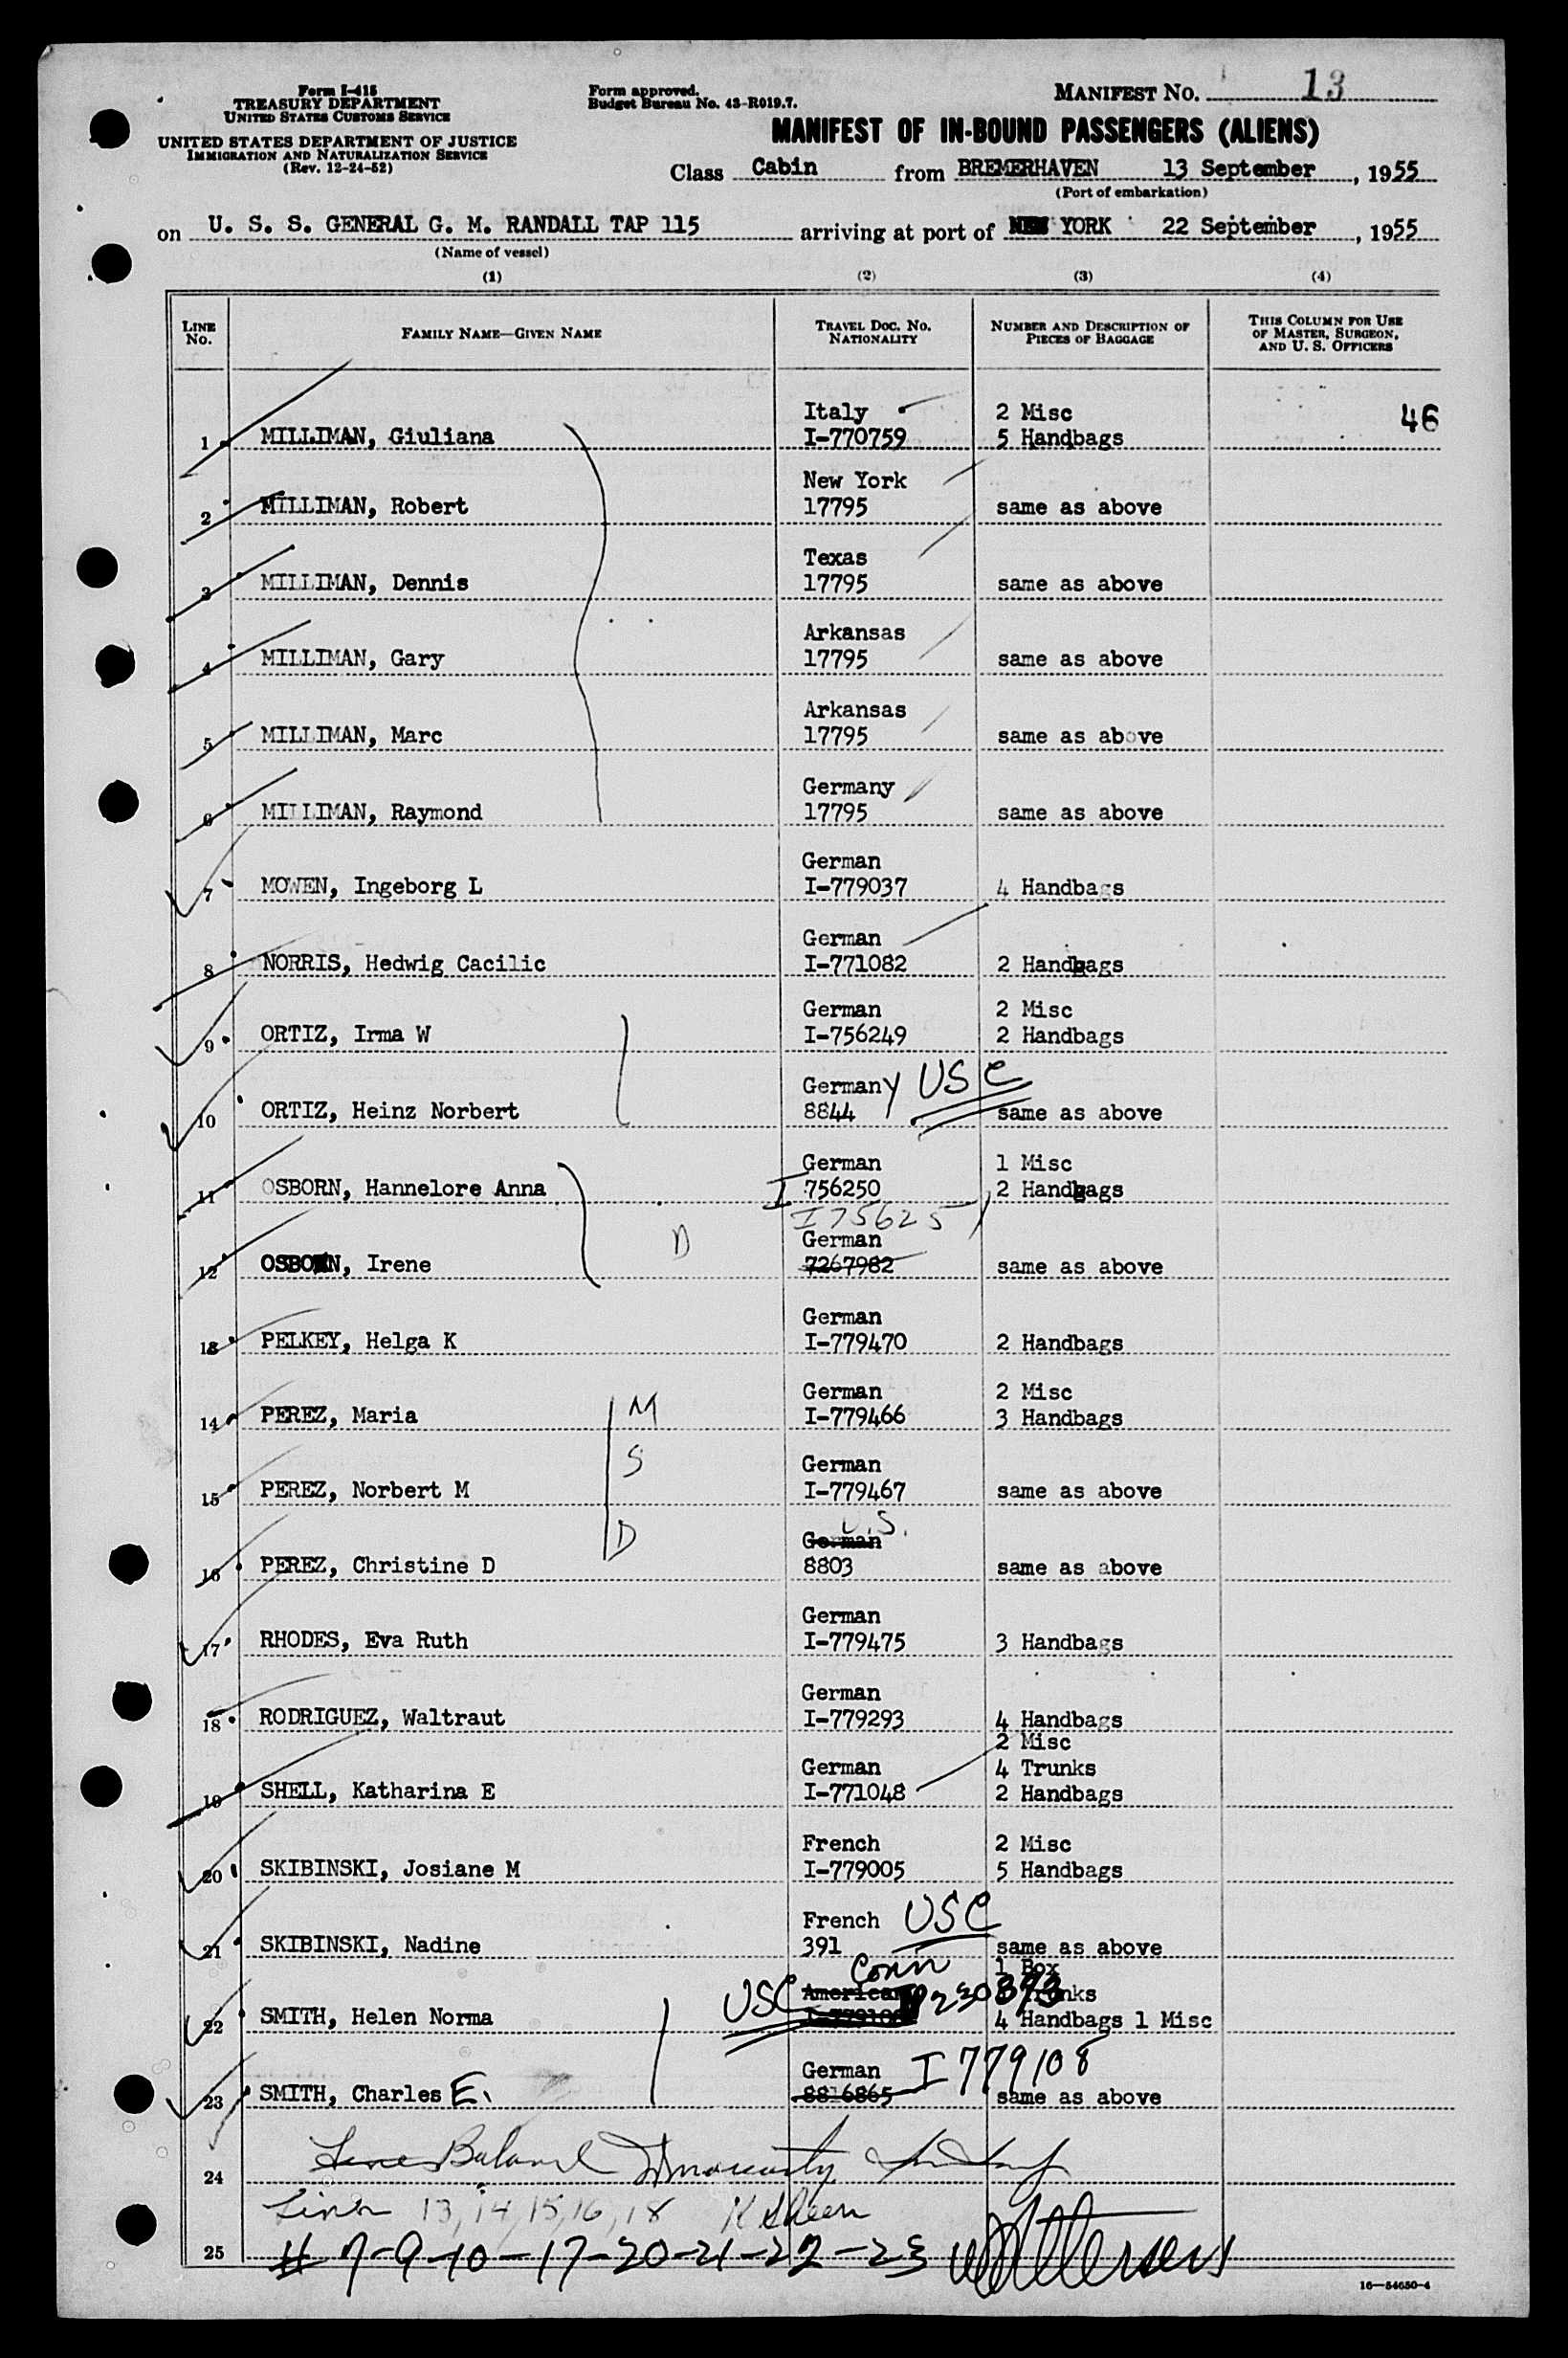 Form I-415
TREASURY DEPARTMENT
UNITED STATES CUSTOMS SERVICE
UNITED STATES DEPARTMENT OF JUSTICE
IMMIGRATION AND NATURALIZATION SERVICE
(Rev. 12-24-52)
Form approved.
Budget Bureau No. 43-R019.7.
MANIFEST NO. 13
MANIFEST OF IN-BOUND PASSENGERS (ALIENS)
Class Cabin from BREMERHAVEN 13 September, 1955
(Port of embarkation)
on U. S. S. GENERAL G. M. RANDALL TAP 115 arriving at port of NEW YORK 22 September, 1955
(Name of vessel)
(1) (2) (3) (4)
LINE No. FAMILY NAME—GIVEN NAME TRAVEL DOC. NO. NATIONALITY NUMBER AND DESCRIPTION OF PIECES OF BAGGAGE THIS COLUMN FOR USE OF MASTER, SURGEON, AND U. S. OFFICERS
Italy 2 Misc 46
1 MILLIMAN, Giuliana I-770759 5 Handbags
New York
2 MILLIMAN, Robert 17795 same as above
Texas
3 MILLIMAN, Dennis 17795 same as above
Arkansas
4 MILLIMAN, Gary 17795 same as above
Arkansas
5 MILLIMAN, Marc 17795 same as above
Germany
6 MILLIMAN, Raymond 17795 same as above
German
7 MOWEN, Ingeborg L I-779037 4 Handbags
German
8 NORRIS, Hedwig Cacilic I-771082 2 Handbags
German 2 Misc
9 ORTIZ, Irma W I-756249 2 Handbags
Germany USC
10 ORTIZ, Heinz Norbert 8844 same as above
German 1 Misc
11 OSBORN, Hannelore Anna I 756250 2 Handbags
I 756251
D German
12 OSBORN, Irene 7267982 same as above
German
13 PELKEY, Helga K I-779470 2 Handbags
German 2 Misc
14 PEREZ, Maria M I-779466 3 Handbags
S German
15 PEREZ, Norbert M I-779467 same as above
U.S.
D German
16 PEREZ, Christine D 8803 same as above
German
17 RHODES, Eva Ruth I-779475 3 Handbags
German
18 RODRIGUEZ, Waltraut I-779293 4 Handbags
2 Misc
German 4 Trunks
19 SHELL, Katharina E I-771048 2 Handbags
French 2 Misc
20 SKIBINSKI, Josiane M I-779005 5 Handbags
French USC
21 SKIBINSKI, Nadine 391 same as above
Conn 1 Box
USC American
22 SMITH, Helen Norma 4 Handbags 1 Misc
German I 779108
23 SMITH, Charles E. 8816865 same as above
24
13, 14, 15, 16, 18
25 # 7-9-10-17-20-21-22-23
16—54650-4